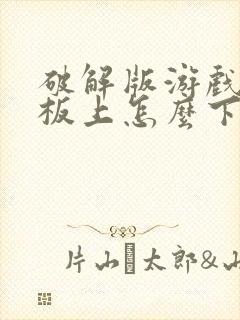 破解版游戲
板上怎麼下
片山太郎&山